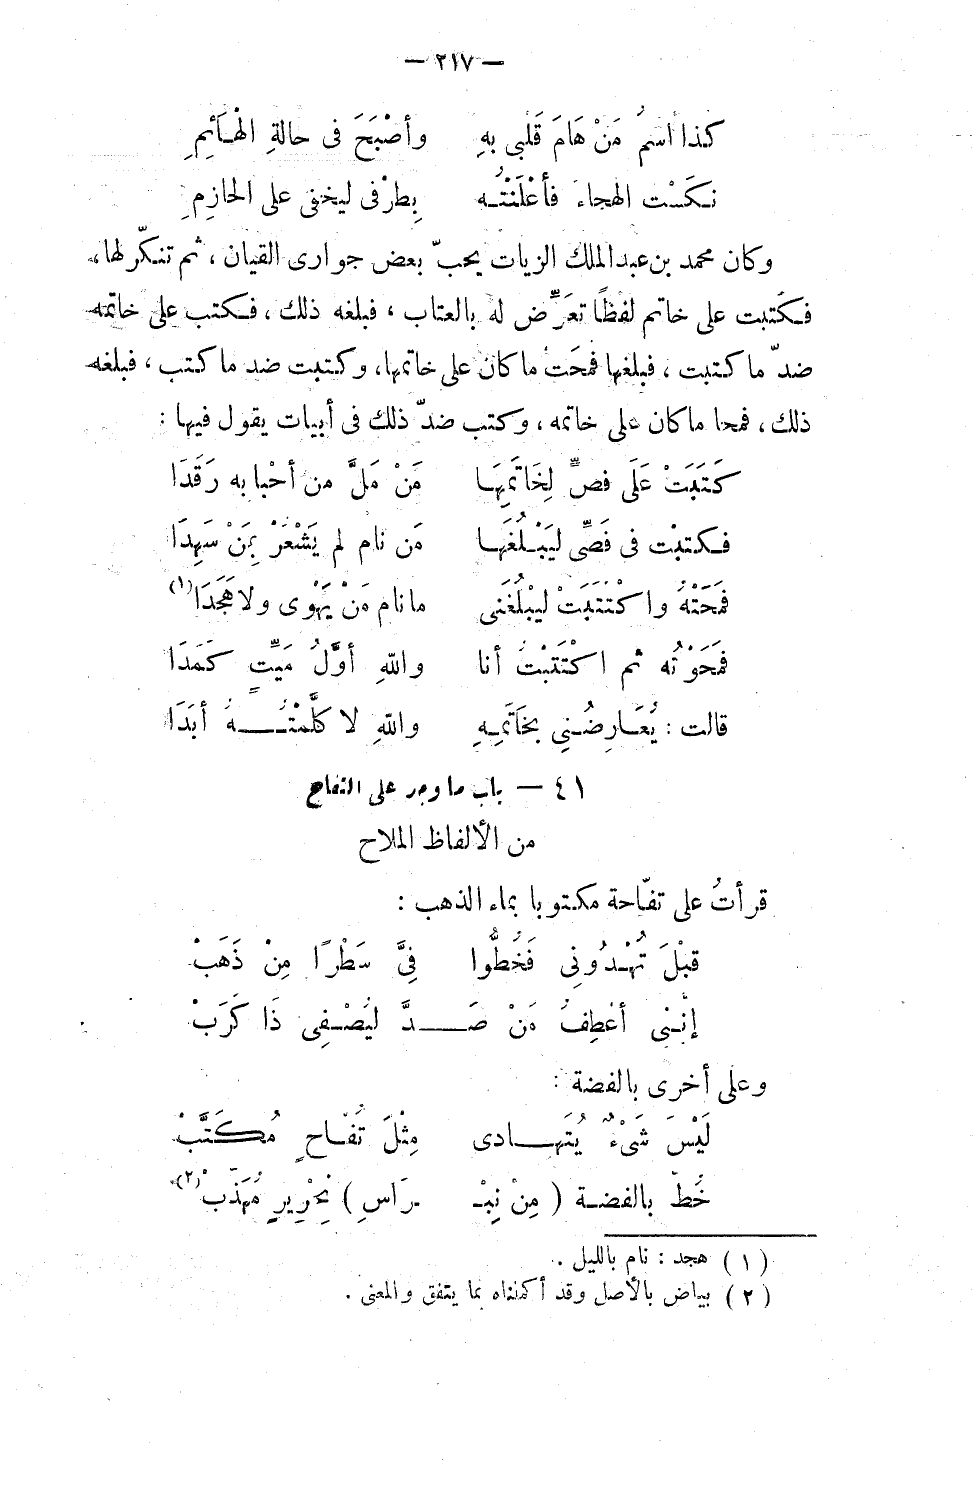 — ٢١٧ —
كذا اسمُ مَنْ هَامَ قَلبى بهِ وأصْبَحَ فى حالةِ الهْـَائِمِ
نـكَسْت الهجاءَ فأعْلَنْتُـه بِطرْفى ليخفى على الحازِمِ
وكان محمد بن عبد الملك الزيات يحبّ بعض جوارى القيان ، ثم تنكّر لها،
فـكَتبت على خاتم لفظًا تعَرِّض له بالعتاب ، فبلغه ذلك ، فـكتب على خاتمه
ضدّ ما كتبت ، فبلغها فمحَت ما كان على خاتمها، وكتبت ضد ما كتب ، فبلغه
ذلك ، فمحا ما كان على خاتمه ، وكتب ضدّ ذلك فى أبيات يقول فيها :
كَتَبَتْ عَلَى فصٍّ لِخَاتَمِهَـا مَنْ مَلَّ من أحْبابه رَقَدَا
فـكتبْت فى فَصِّى ليَبْـلُغَهـا مَن نام لم يَشْعُرْ بمَنْ سَهِدَا
فمَحَتْهُ واكْتَتَبَتْ ليَبْلُغَنى ما نام مَنْ يَهْوى ولا هَجَدَا (١)
فمَحَوْتُه ثم اكْتَتَبْتُ أنا واللهِ أوَّلُ مَيِّتٍ كَمَدَا
قالت : يُعَـارِضُـنِي بخَاتَمِـهِ واللهِ لا كلَّمْتُـــهُ أبَدَا
٤١ — باب ما وجد على التفاح
من الألفاظ الملاح
قرأتُ على تفّاحة مكتوبا بماء الذهب :
قبْلَ تُهْـدُونِي فَخُطُّوا فِيَّ سَطْرًا مِنْ ذَهَبْ
إنّـنى أعْطِفُ مَنْ صَـــدَّ ليُصْـفِى ذَا كَرَبْ
وعلى أخرى بالفضة :
لَيْسَ شَىْءٌ يُتَهَـــادى مِثْلَ تُفـَّاحٍ مُكَتَّبْ
خُطَّ بالفضـة ( مِنْ نِبْـ ـرَاسِ ) نِحْرِيرٍ مُهَذّبْ (٢)
( ١ ) هجد : نام بالليل .
( ٢ ) بياض بالأصل وقد أكملناه بما يتفق والمعنى .